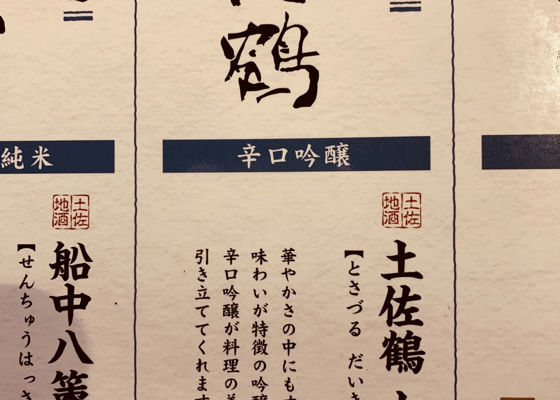 鶴
辛口吟醸
土佐
地酒
土佐鶴
【とさづる だいき
華やかさの中にも
味わいが特徴の吟醸
辛口吟醸が料理の美
引き立ててくれます
純米
土佐
地酒
船中八策
【せんちゅうはっさ